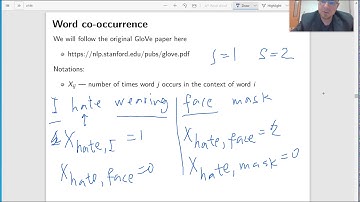 Word co-occurrence
We will follow the original GloVe paper here
https://nlp.stanford.edu/pubs/glove.pdf
S=1 S=2
Notations:
X_ij — number of times word j occurs in the context of word i
I hate wearing face mask
X_hate, I = 1
X_hate, face = 0
X_hate, face =
X_hate, mask = 0